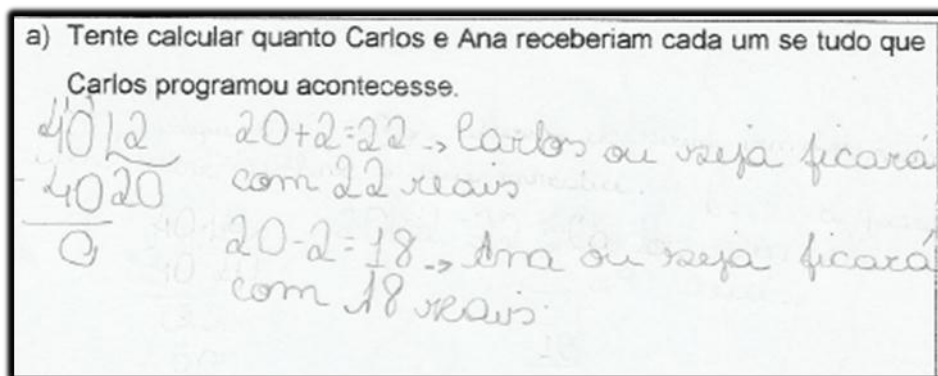 a) Tente calcular quanto Carlos e Ana receberiam cada um se tudo que
Carlos programou acontecesse.
40 | 2    20+2=22 → Carlos ou seja ficará
- 40 20    com 22 reais
0    20-2=18 → Ana ou seja ficará
com 18 reais.